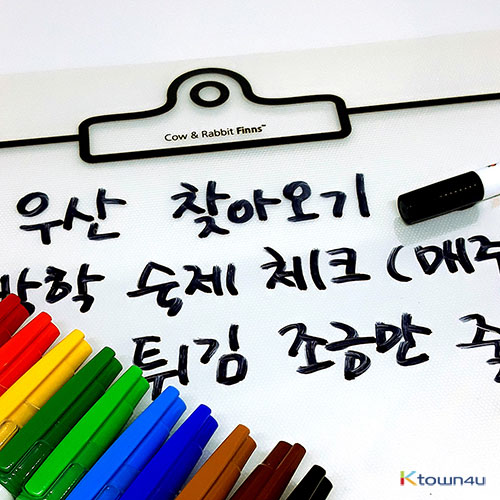 Cow & Rabbit Finns™
우산 찾아오기
방학 숙제 체크 (매주
튀김 조금만
Ktown4u